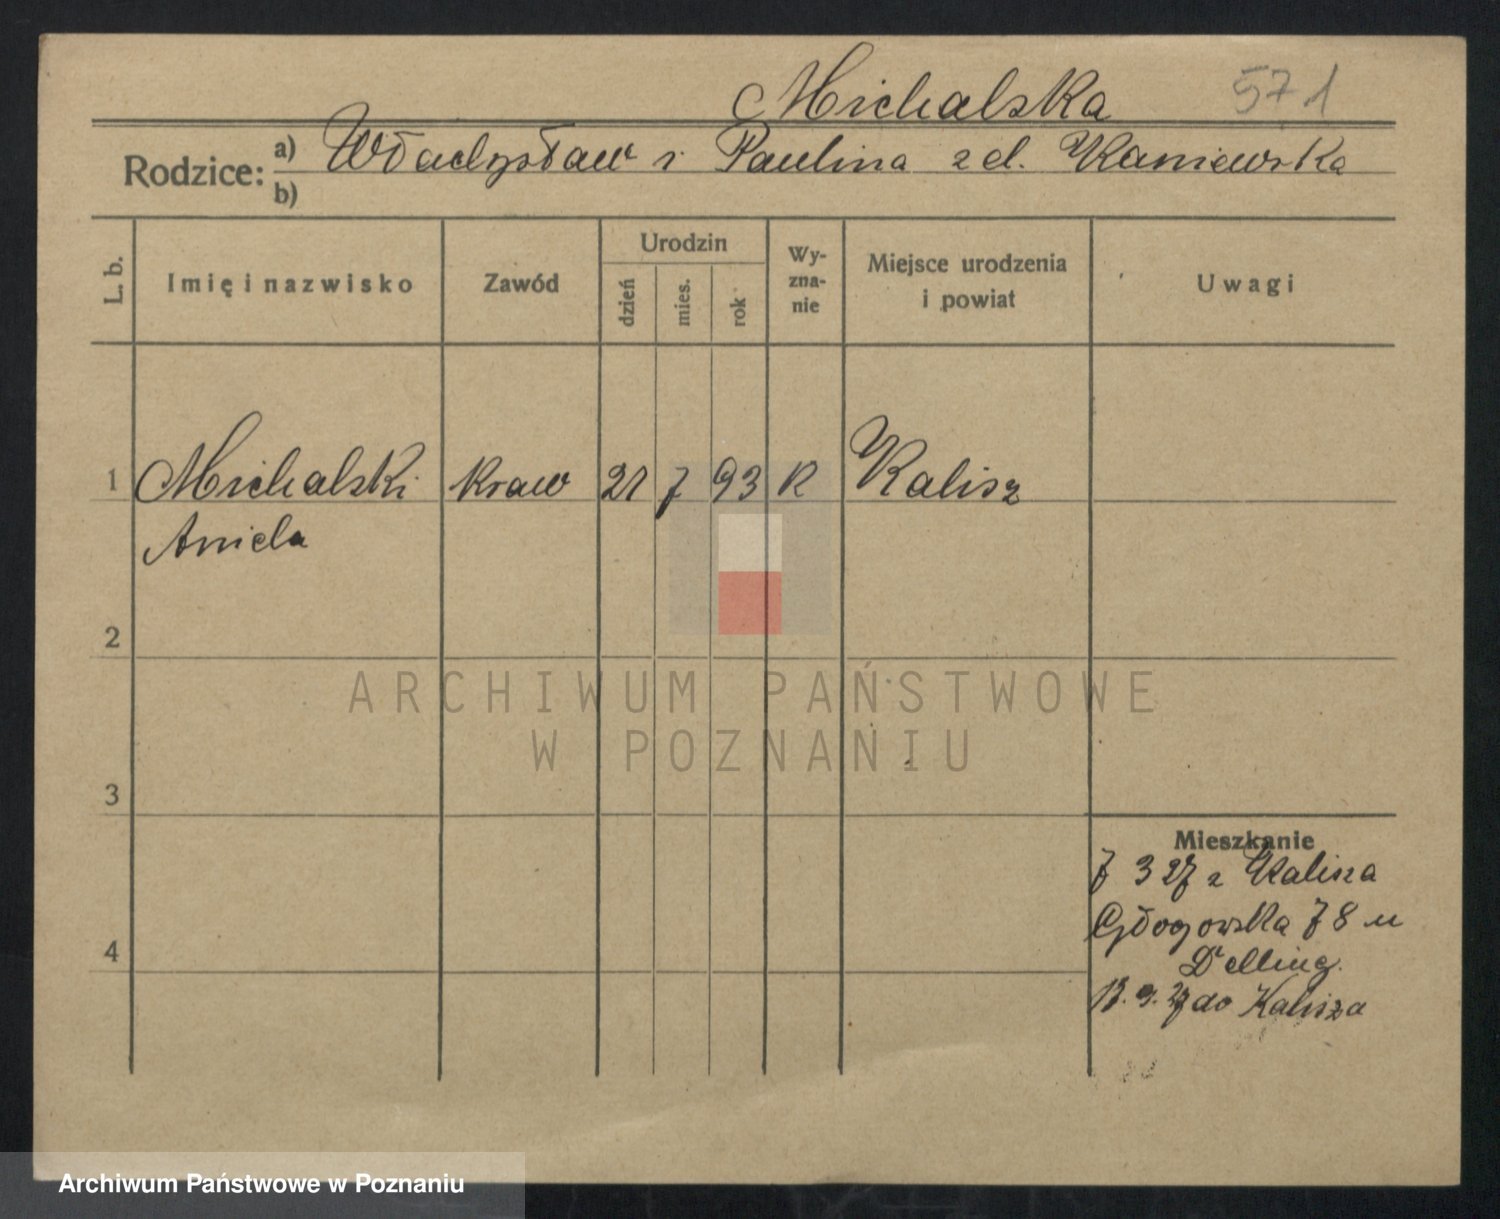 Michalska 571
Rodzice: a) Władysław i Paulina z d. Kaniewska
b)
L. b. Imię i nazwisko Zawód Urodzin dzień mies. rok Wyznanie Miejsce urodzenia i powiat Uwagi
1 Michalski kraw 21 7 93 R Kalisz
Aniela
2
3
4
Mieszkanie
7 3 27 z Kalisza
Głogowska 78 u
9. 27 do Kalisza
ARCHIWUM PAŃSTWOWE
W POZNANIU
Archiwum Państwowe w Poznaniu